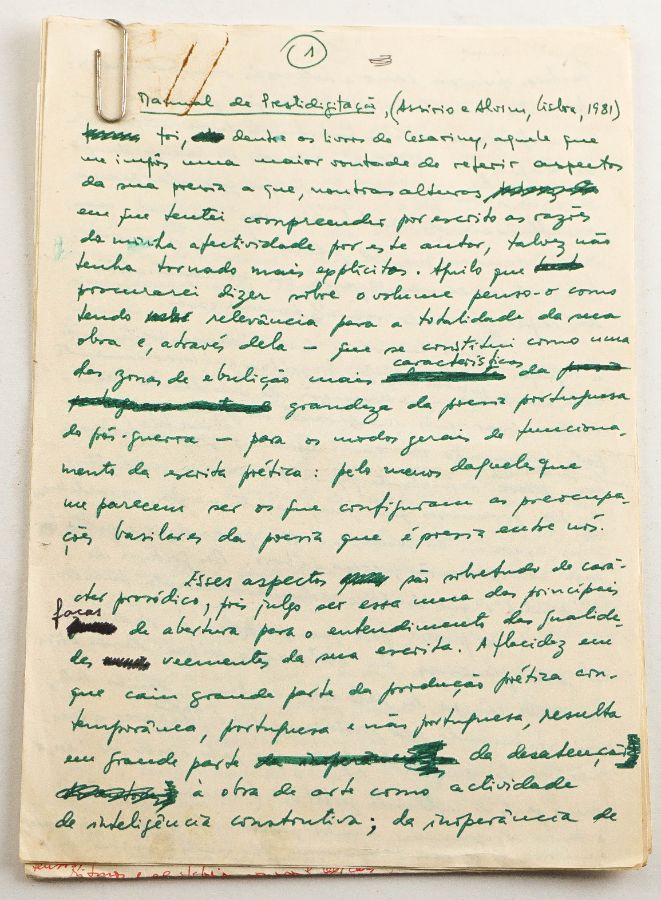 1
Manual de Prestidigitação, (Assírio e Alvim, Lisboa, 1981)
foi, dentre os livros de Cesariny, aquele que
me impôs uma maior vontade de referir aspectos
da sua poesia a que, noutras alturas
em que tentei compreender por escrito as razões
da minha afectividade por este autor, talvez não
tenha tornado mais explícitos. Aquilo que
procurarei dizer sobre o volume penso-o como
tendo relevância para a totalidade da sua
obra e, através dela — que se constitui como uma
das zonas de ebulição mais características da
grandeza da poesia portuguesa
do pós-guerra — para os modos gerais de funciona-
mento da escrita poética: pelo menos daqueles que
me parecem ser os que configuram as preocupa-
ções basilares da poesia que é poesia entre nós.
Esses aspectos são sobretudo de cará-
cter prosódico, pois julgo ser essa uma das principais
de abertura para o entendimento das qualida-
des veementes da sua escrita. A flacidez em
que caiu grande parte da produção poética con-
temporânea, portuguesa e não portuguesa, resulta
em grande parte da desatenção
à obra de arte como actividade
de inteligência construtiva; da inoperância de